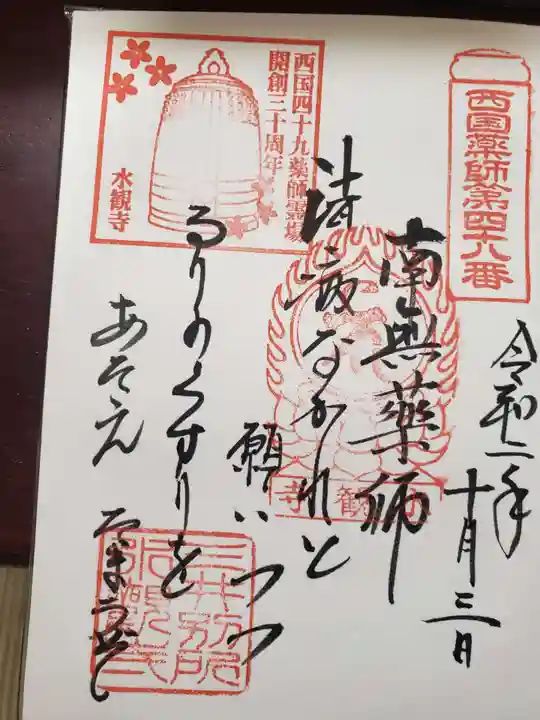 西国薬師第四十八番
令和二年
十月三日
南無薬師
諸病なかれと
願いつつ
るりのくすりを
あたえ
西国四十九薬師霊場
開創三十周年
水観寺
水観寺
三井別所
水観寺